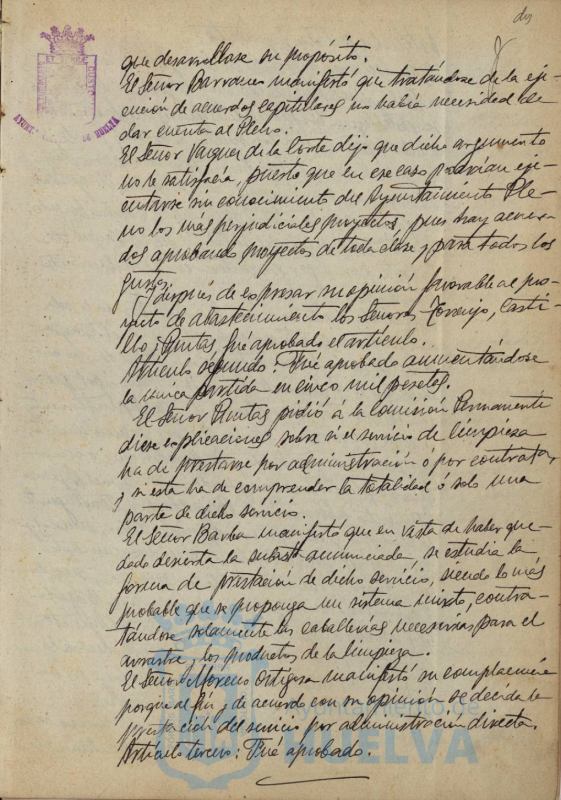 que desarrollase su propósito.
El Señor Barranco manifestó que tratándose de la eje-
cución de acuerdos capitulares no había necesidad de
dar cuenta al Pleno.
El Señor Vazquez de la Corte dijo que dicho argumento
no le satisfacía, puesto que en ese caso podrían eje-
cutarse sin conocimiento del Ayuntamiento Ple-
no los más perjudiciales proyectos, pues hay acuer-
dos aprobando proyectos de toda clase y para todos los
gustos.
Y después de expresar su opinión favorable al pro-
yecto de abastecimiento los Señores Tornejo, Casti-
llo y Pintas fué aprobado el artículo.
Artículo segundo: Fué aprobado aumentándose
la única partida en cinco mil pesetas.
El Señor Pintas pidió á la Comisión Permanente
diese explicaciones sobre si el servicio de limpieza
ha de prestarse por administración ó por contrata,
y si esta ha de comprender la totalidad ó solo una
parte de dicho servicio.
El Señor Barba manifestó que en vista de haber que-
dado desierta la subasta anunciada, se estudia la
forma de prestación de dicho servicio, siendo lo más
probable que se proponga un sistema mixto, contra-
tándose solamente las caballerías necesarias para el
arrastre y los productos de la limpieza.
El Señor Moreno Ortigosa manifestó su complacencia
porque al fin y de acuerdo con su opinión se decida la
prestación del servicio por administración directa.
Artículo tercero: Fué aprobado.
AYUNT DE HUELVA
Ayuntamiento de
HUELVA